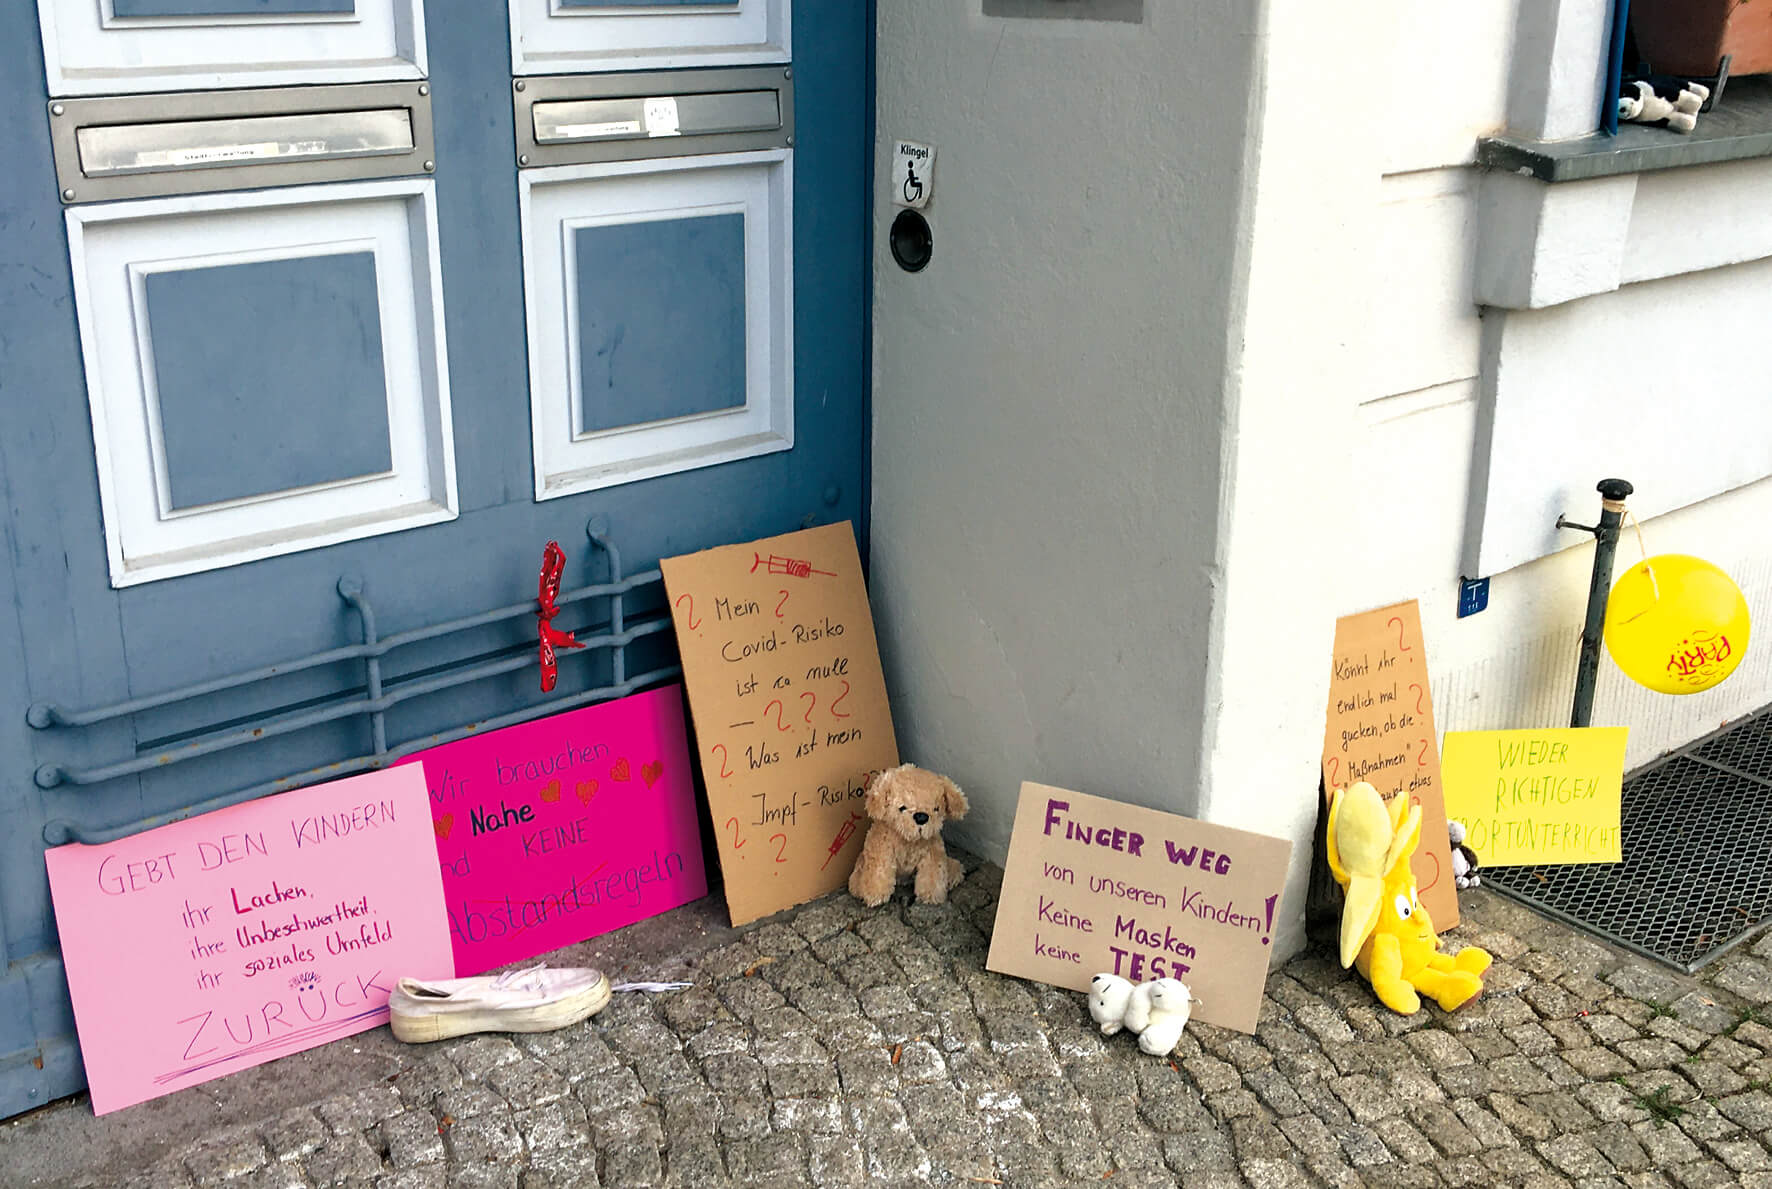 Stadtverwaltung
Klingel
GEBT DEN KINDERN
ihr Lachen,
ihre Unbeschwertheit,
ihr soziales Umfeld
ZURÜCK
Wir brauchen
Nähe
und KEINE
Abstandsregeln
? Mein ?
Covid-Risiko
ist ca null
– ? ? ?
? Was ist mein
Impf-Risiko?
? ?
FINGER WEG
von unseren Kindern!
Keine Masken
keine TEST
?
Könnt ihr
endlich mal ?
gucken, ob die
? "Maßnahmen" ?
etwas
?
WIEDER
RICHTIGEN
PORTUNTERRICHT
PARTY
T